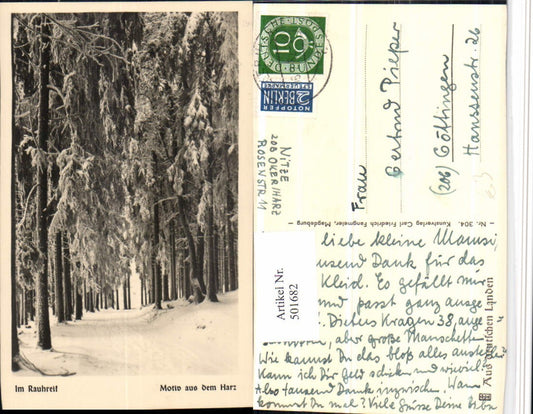 Im Rauhreif
Motiv aus dem Harz
DEUTSCHE BUNDESPOST
10
2 BERLIN
NOTOPFER
STEUERMARKE
NITZE
20B OKER/HARZ
ROSENSTR. 11
Frau
Gertrud Pieper
(20b) Göttingen
Hanssenstr. 26
Nr. 304 Kunstverlag Carl Friedrich Fangmeier, Magdeburg
Aus deutschen Landen
Artikel Nr.
501682
liebe kleine Mausi,
tausend Dank für das
Kleid. Es gefällt mir
und passt ganz ausge
Dieters Kragen 38,
aber große Manschetten
Wie kannst Du das bloß alles
Kann ich Dir Geld schicken und wieviel
Also tausend Dank inzwischen. Wann
kommst Du mal? Viele Grüsse Deine